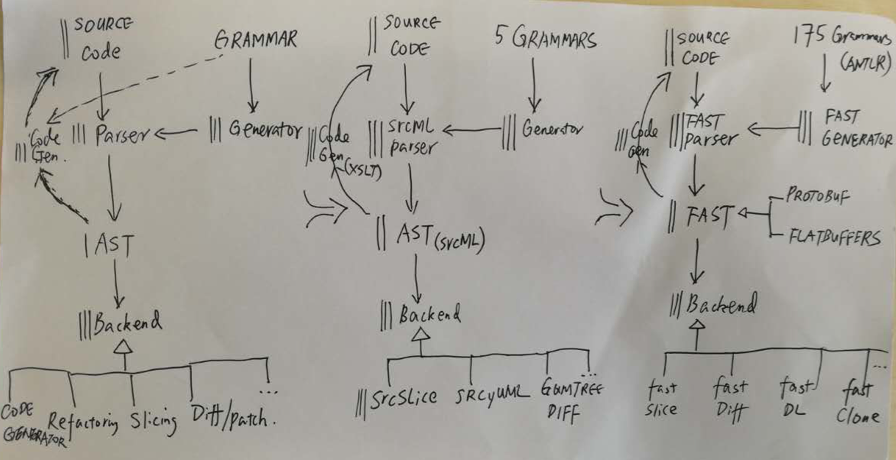 SOURCE
Code
GRAMMAR
Code
Gen.
Parser
Generator
AST
Backend
CODE
GENERATOR
Refactoring
Slicing
Diff/patch.
...
SOURCE
CODE
5 GRAMMARS
Code
Gen
(XSLT)
SrcML
parser
Generator
AST (srcML)
Backend
SrcSlice
SRCyUML
GUMTREE
DIFF
...
SOURCE
CODE
175 Grammars
(ANTLR)
Code
Gen
FAST
Parser
FAST
GENERATOR
FAST
PROTOBUF
FLATBUFFERS
Backend
fast
Slice
fast
Diff
fast
DL
fast
Clone
...